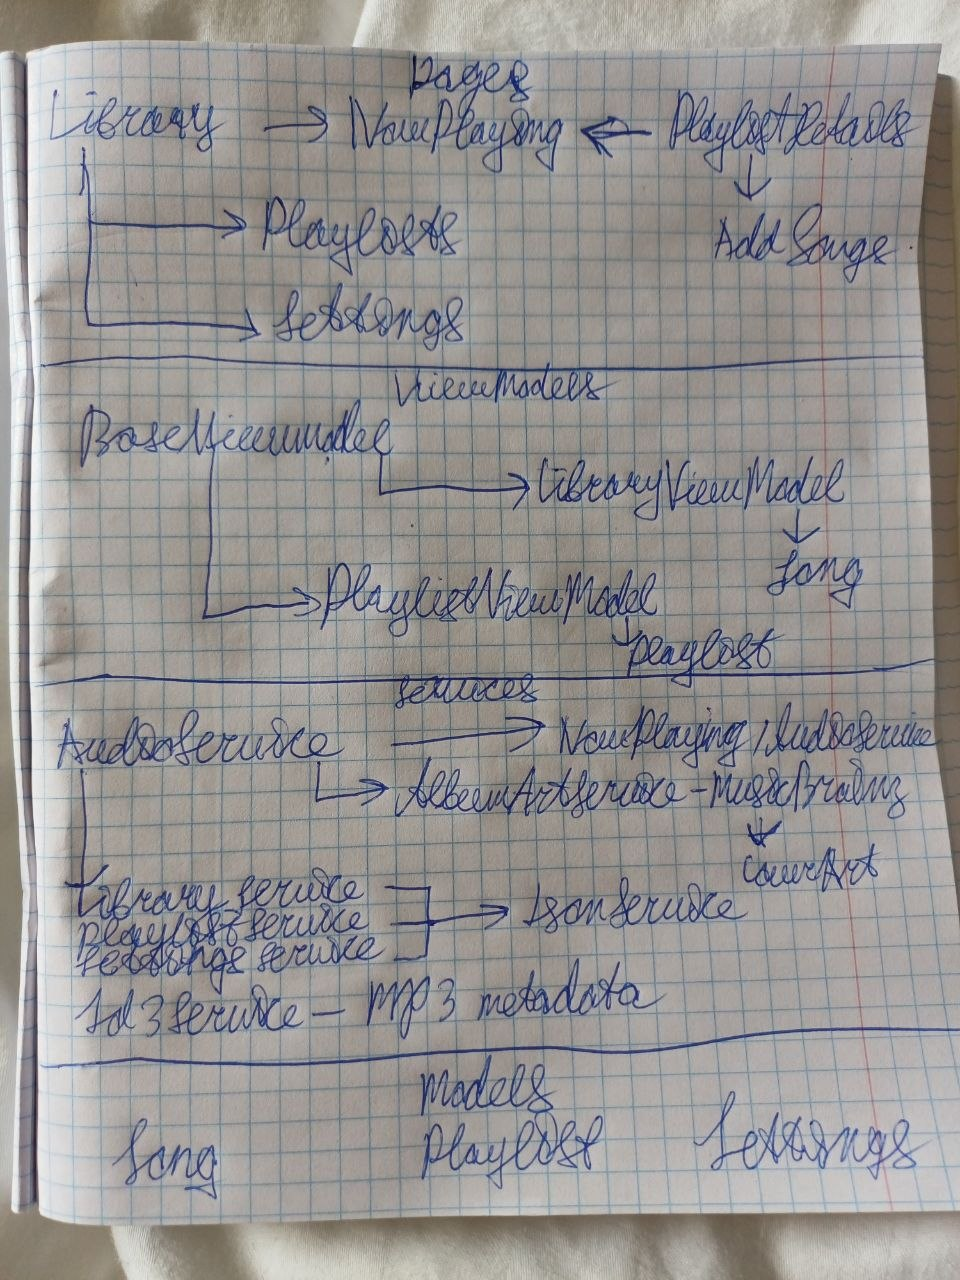 Pages
Library → NowPlaying ← PlaylistDetails
Playlists
AddSongs
Settings
ViewModels
BaseViewmodel
LibraryViewModel
Song
PlaylistViewModel
playlist
services
AudioService → NowPlaying, AudioService
AlbumArtService - MusicBrainz
CoverArt
Library service
playlist service
settings service
JsonService
Id3Service - MP3 metadata
Models
Song Playlist Settings